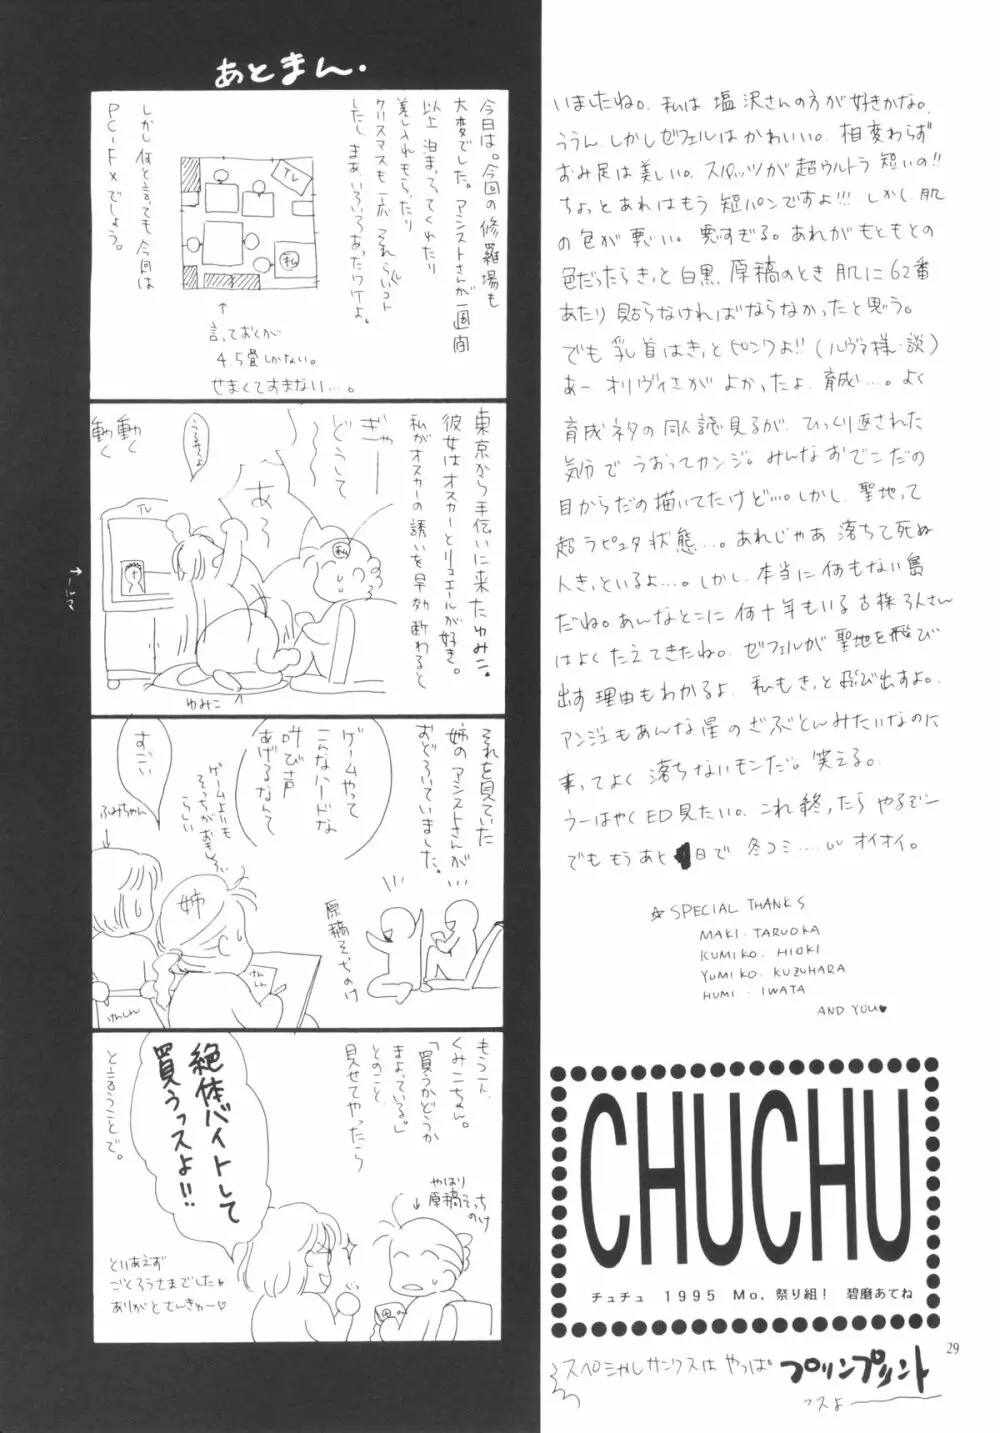 あとまん.
今日は。今回の修羅場も
大変でした。アシストさんが一週間
以上泊まってってくれたり
差し入れもらったり
クリスマスも一応それらしいコト
したし、まあいろいろあったワケよ。
TV
私
↑
言っておくが
4.5畳しかない。
せまくてすまない…。
しかし何と言っても今回は
PC-FXでしょう。
東京から手伝いに来たゆみこ。
彼女はオスカーとリュミエールが好き。
私がオスカーの誘いを早効断わると
ぎゃー
どうして
〜
あう
うるせえよ
動く
動く
TV
私
ゆみこ
それを見ていた
姉のアシストさんが
おどろいていました。
ゲームやって
こんなハードな
叫び声
あげるなんて
すごい
ゲームよりも
そっちがおもしろい
らしい
ふみちゃん
姉
原稿そっちのけ
けしけし
もう一人、
くみこちゃん。
「買うかどうか
まよっている。」
とのこと、
見せてやったら
絶体バイトして
買うっスよ!!
やはり
原稿そっち
のけ
と言うことで。
とりあえず
ごくろうさまでした
ありがとてんきゅー♡
いましたね。私は塩沢さんの方が好きかな。
ううん、しかしゼフェルはかわいい。相変わらず
おみ足は美しい。スパッツが超ウルトラ短いの!!
ちょっとあれはもう短パンですよ!!! しかし、肌
の色が悪い。悪すぎる。あれがもともとの
色だったらきっと白黒原稿のとき肌に62番
あたり貼らなければならなかったと思う。
でも乳首はきっとピンクよ!!(ルヴァ様・談)
あー オリヴィエがよかったよ、育成…。よく
育成ネタの同人誌見るが、ひっくり返された
気分でうおってカンジ。みんなおでこだの
目からだの描いてたけど…。しかし、聖地って
超ラピュタ状態…。あれじゃあ落ちて死ぬ
人きっといるよ…。しかし、本当に何もない島
だね。あんなとこに何十年もいる古株3人さん
はよくたえてきたね。ゼフェルが聖地を飛び
出す理由もわかるよ、私もきっと飛び出すよ。
アンジェもあんな星のざぶとんみたいなのに
乗ってよく落ちないモンだ。笑える。
うーはやくED見たい。これ終ったらやるぞー
でももうあと 日で冬コミ……オイオイ。
☆SPECIAL THANKS
MAKI・TARUOKA
KUMIKO・HIOKI
YUMIKO・KUZUHARA
HUMI・IWATA
AND YOU♥
CHUCHU
チュチュ 1995 Mo,祭り組! 碧磨あてね
29
スペシャルサンクスはやっぱ プリンプリント
っスよー